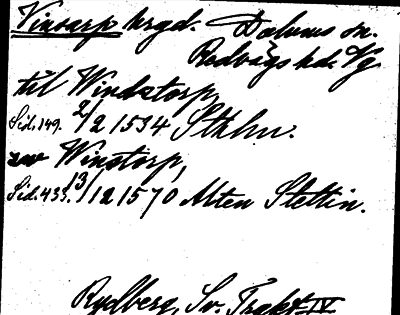 Vinsarp hrgd. Dalums sn.
Redvägs hd. Vg
till Windztorp,
Sid. 149. 2/2 1534 Sthlm.
av Winstorp,
Sid. 433. 13/12 1570 Alten Stettin.
Rydberg, Sv. Trakt. IV